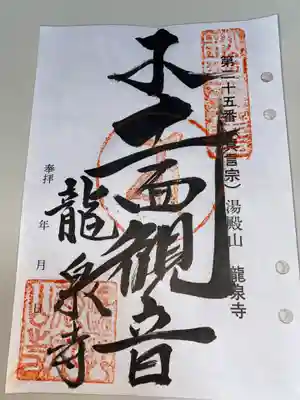 第二十五番(真言宗)湯殿山 龍泉寺
十一面観音
龍泉寺
奉拝
年 月 日